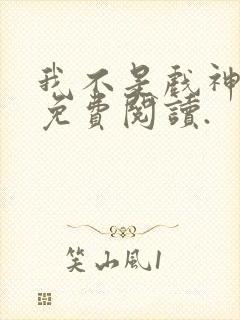 我不是戏神
免費閱讀.
笑山風1